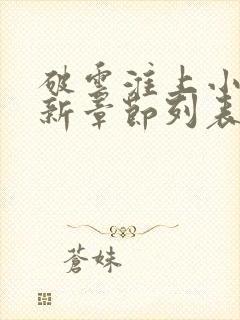 破雲淮上小
新章節列表
蒼妹